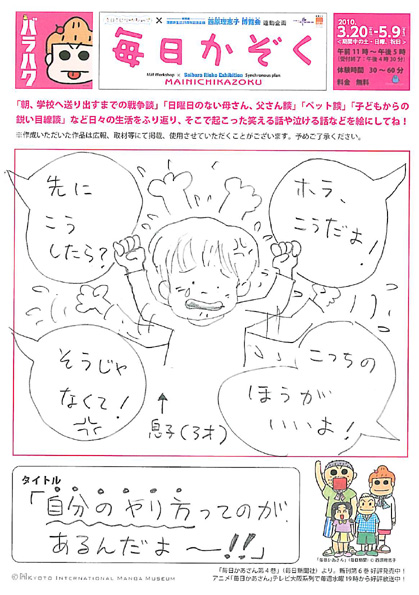 バラハク
西原理恵子 博覧会 連動企画
毎日かぞく
MM Workshop × Saibara Rieko Exhibition Synchronous plan
MAINICHIKAZOKU
2010.
3.20土-5.9日
<期間中の土・日曜、祝日>
午前11時~午後5時
(受付終了:午後4時30分)
体験時間 30~60分
料金 無料
「朝、学校へ送り出すまでの戦争談」「日曜日のない母さん、父さん談」「ペット談」「子どもからの
鋭い目線談」など日々の生活をふり返り、そこで起こった笑える話や泣ける話などを絵にしてね!
※作成いただいた作品は広報、取材等にて掲載、使用させていただくことがございます。予めご了承ください。
先に
こう
したら?
ホラ、
こうだよ!
そうじゃ
なくて!
こっちの
ほうが
いいよ!
↑
息子(3才)
タイトル
「自分のやり方ってのが
あるんだよ~!!」
©KYOTO INTERNATIONAL MANGA MUSEUM
「毎日かあさん第4巻」(毎日新聞社)より、新刊第6巻好評発売中!
アニメ「毎日かあさん」テレビ大阪系列で毎週水曜19時から好評放送中!